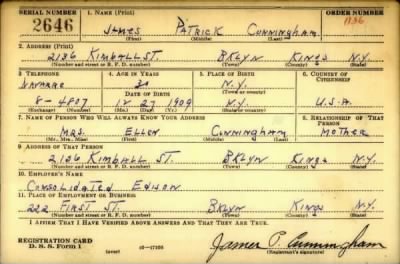 SERIAL NUMBER 1. NAME (Print) ORDER NUMBER
2646 JAMES PATRICK CUNNINGHAM 1136
(First) (Middle) (Last)
2. ADDRESS (Print)
2136 KIMBALL ST. BKLYN KINGS N.Y.
(Number and street or R. F. D. number) (Town) (County) (State)
3. TELEPHONE 4. AGE IN YEARS 5. PLACE OF BIRTH 6. COUNTRY OF CITIZENSHIP
NAVARRE 31 N.Y.
DATE OF BIRTH
8-4807 12 27 1909 N.Y. U.S.A.
(Exchange) (Number) (Mo.) (Day) (Yr.) (State or country)
7. NAME OF PERSON WHO WILL ALWAYS KNOW YOUR ADDRESS 8. RELATIONSHIP OF THAT PERSON
MRS. ELLEN CUNNINGHAM MOTHER
(Mr., Mrs., Miss) (First) (Middle) (Last)
9. ADDRESS OF THAT PERSON
2136 KIMBALL ST. BKLYN KINGS N.Y.
(Number and street or R. F. D. number) (Town) (County) (State)
10. EMPLOYER'S NAME
CONSOLIDATED EDISON
11. PLACE OF EMPLOYMENT OR BUSINESS
222 FIRST ST. BKLYN KINGS N.Y.
(Number and street or R. F. D. number) (Town) (County) (State)
I AFFIRM THAT I HAVE VERIFIED ABOVE ANSWERS AND THAT THEY ARE TRUE.
REGISTRATION CARD
D. S. S. Form 1 (over) 16-17105 James P. Cunningham
(Registrant's signature)